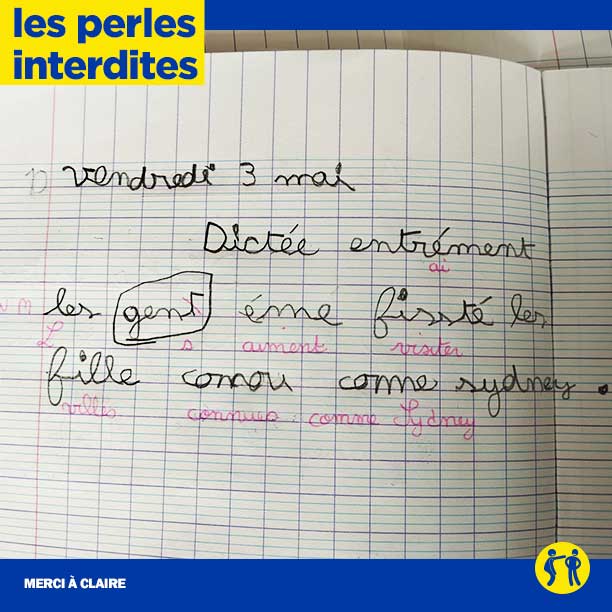 les perles
interdites
1) vendredi 3 mai
Dictée entrément
ai
les gent éme fissté les
L s aiment visiter
fille comou come sydney.
villes connues comme Sydney
MERCI À CLAIRE